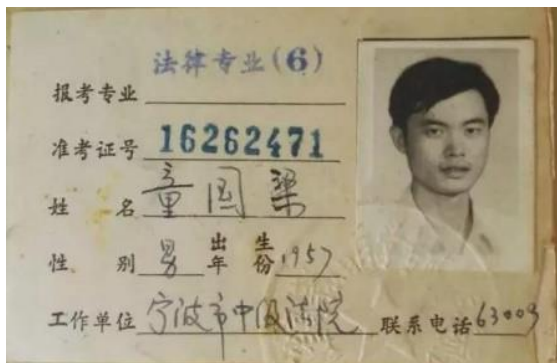 报考专业 法律专业(6)
准考证号 16262471
姓名 童国梁
性别 男 出生年份 1957
工作单位 宁波市中级法院 联系电话 63009